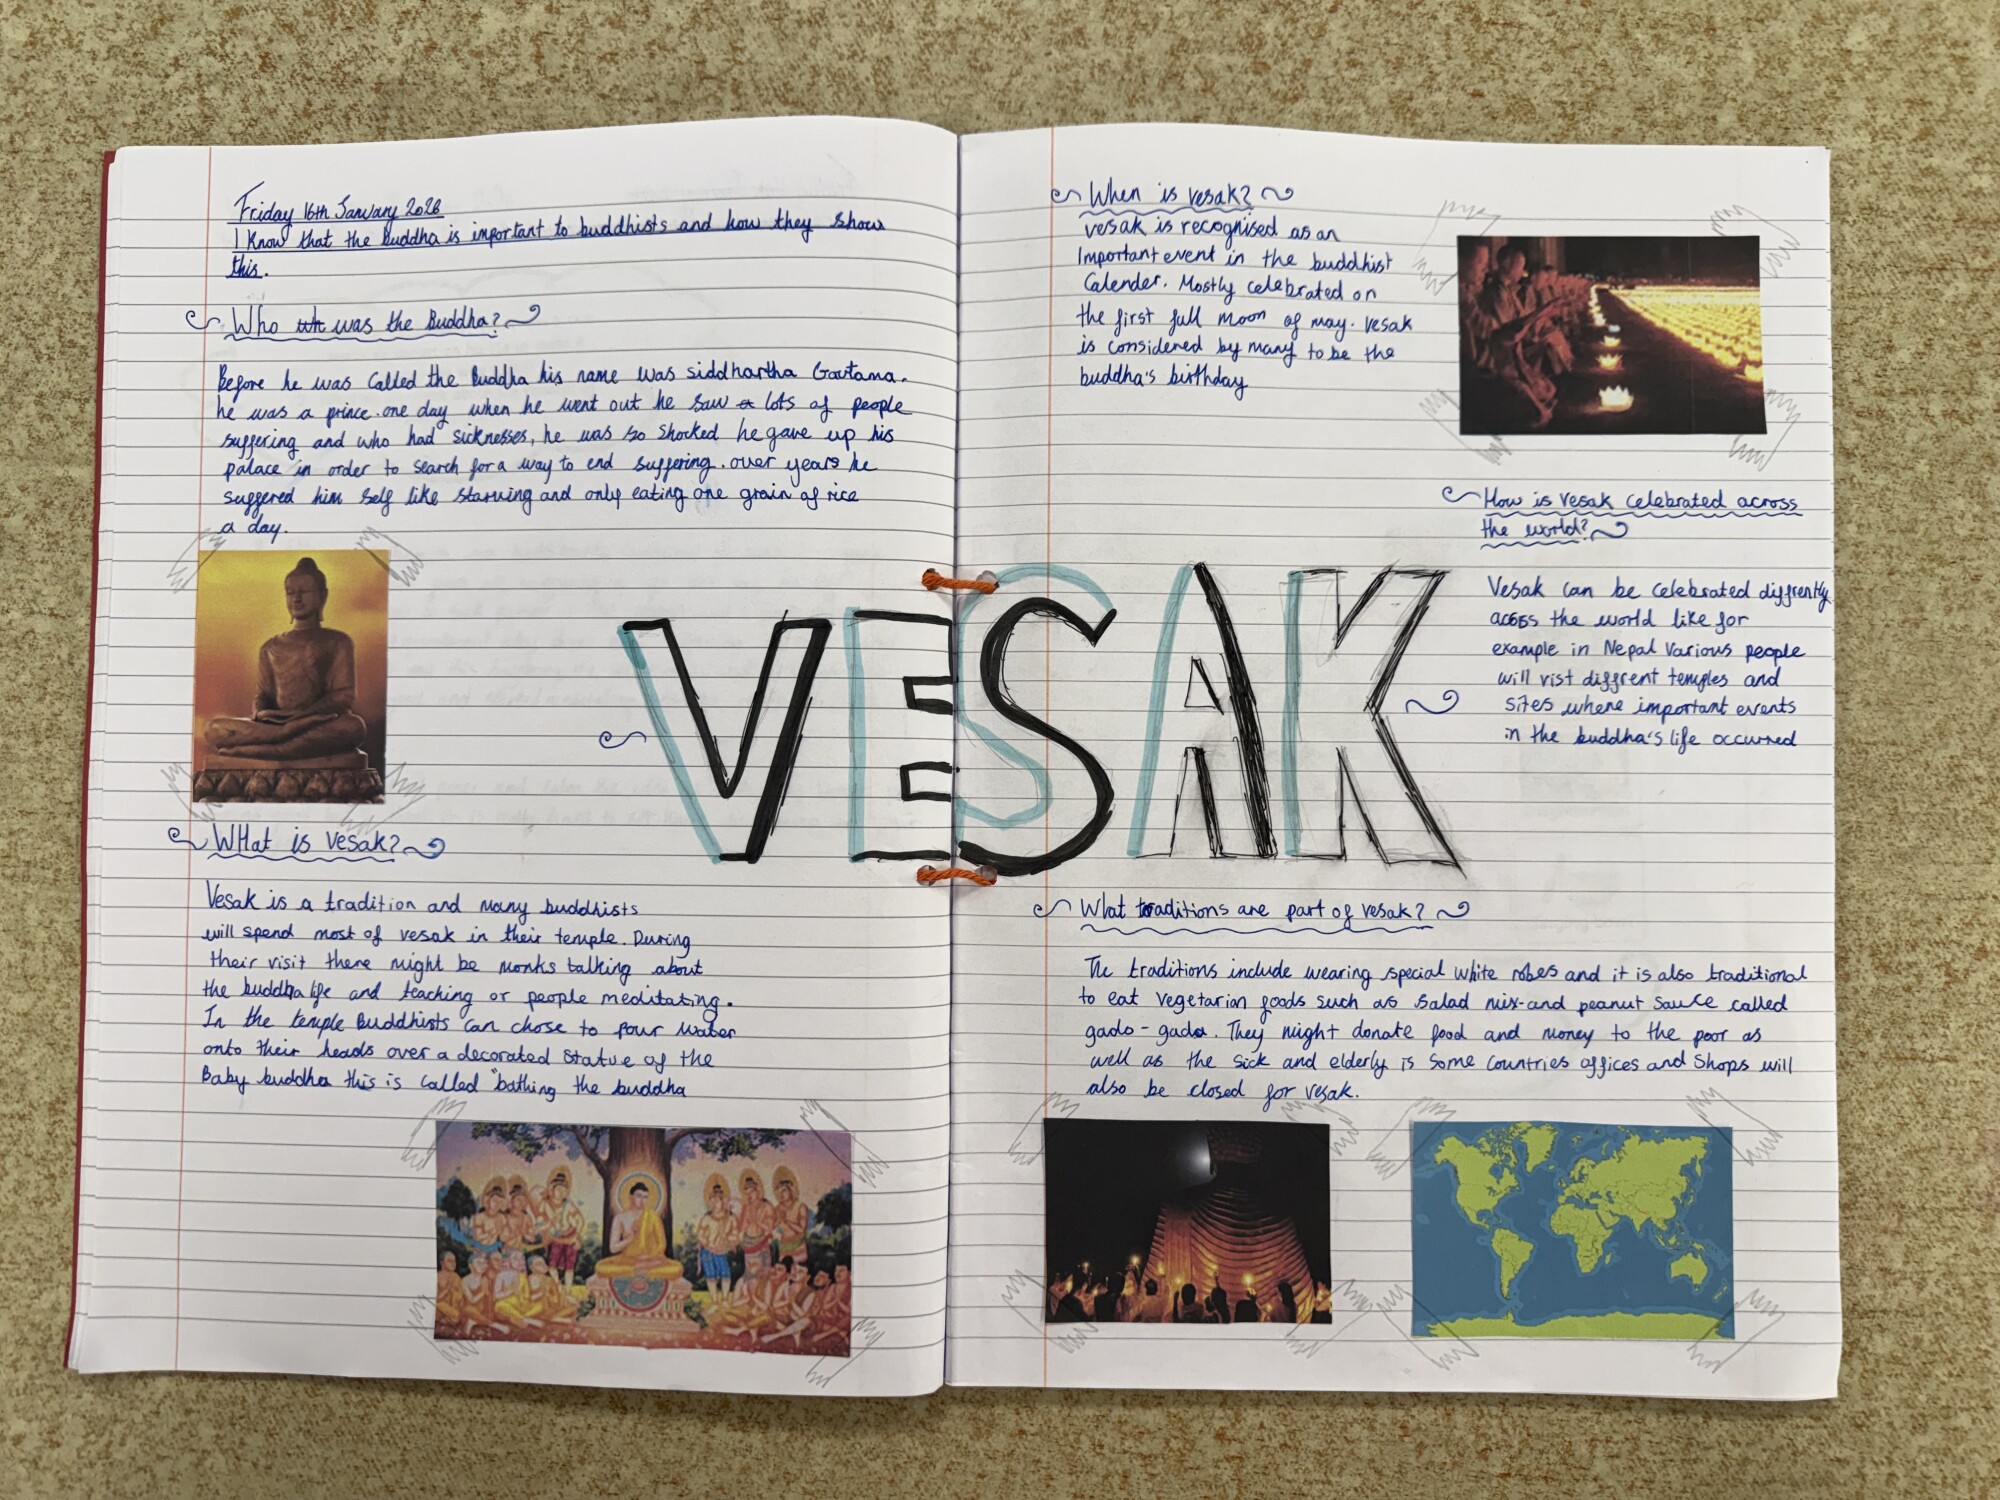 Friday 16th January 2026
I Know that the Buddha is important to buddhists and how they show
this.
Who wh was the Buddha?
Before he was called the Buddha his name was siddhartha Gautama.
he was a prince. one day when he went out he saw a lots of people
suffering and who had sicknesses, he was so shocked he gave up his
palace in order to search for a way to end suffering. over years he
suffered him self like starving and only eating one grain of rice
a day.
WHat is Vesak?
Vesak is a tradition and many buddhists
will spend most of vesak in their temple. During
their visit there might be monks talking about
the buddha life and teaching or people meditating.
In the temple Buddhists can chose to pour water
onto their heads over a decorated statue of the
Baby buddha this is called "bathing the buddha
VESAK
When is vesak?
vesak is recognised as an
important event in the buddhist
Calender. Mostly celebrated on
the first full moon of may. vesak
is considered by many to be the
buddha's birthday
How is vesak celebrated across
the world?
Vesak can be celebrated diffrently
across the world like for
example in Nepal various people
will vist diffrent temples and
sites where important events
in the buddha's life occurred
What traditions are part of vesak?
The traditions include wearing special white robes and it is also traditional
to eat vegetarian foods such as salad mix-and peanut sauce called
gado-gado. They might donate food and money to the poor as
well as the sick and elderly is some countries offices and shops will
also be closed for vesak.